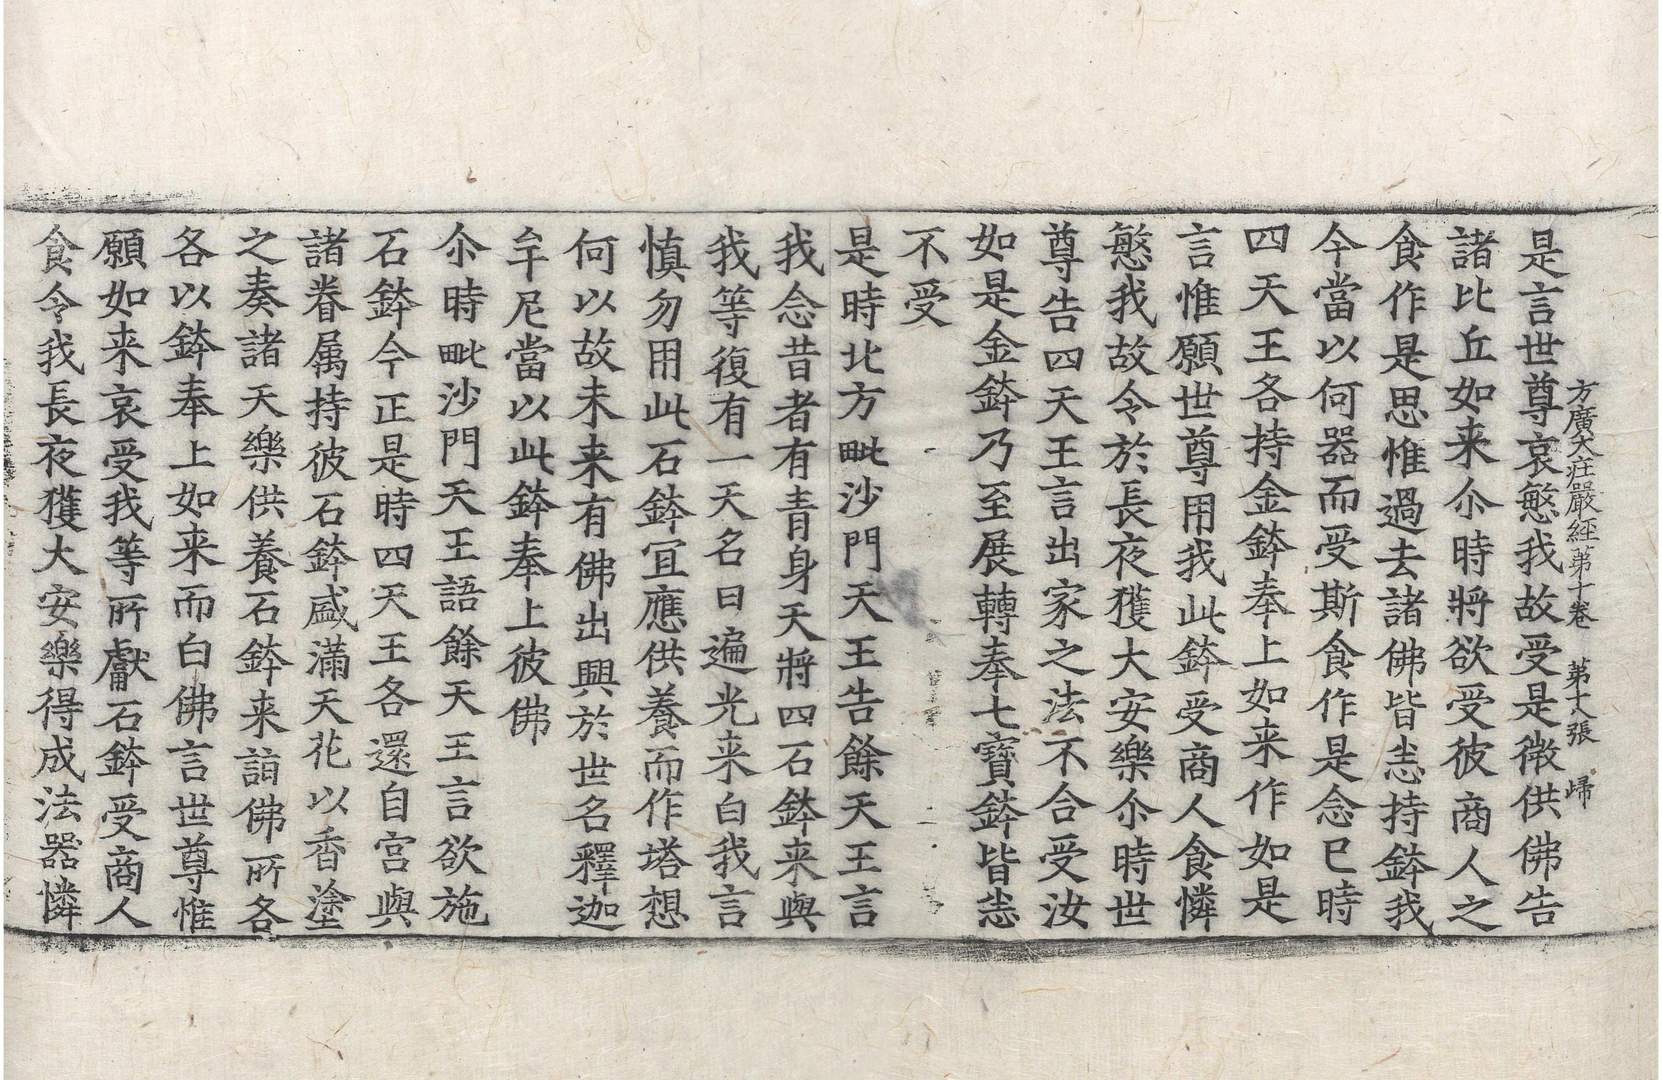 方廣大莊嚴經第十卷　第十八張　歸
是言世尊哀愍我故受是微供佛告
諸比丘如来尒時將欲受彼商人之
食作是思惟過去諸佛皆悉持鉢我
今當以何器而受斯食作是念已時
四天王各持金鉢奉上如来作如是
言惟願世尊用我此鉢受商人食憐
愍我故令於長夜獲大安樂尒時世
尊告四天王言出家之法不合受汝
如是金鉢乃至展轉奉七寶鉢皆悉
不受
是時北方毗沙門天王告餘天王言
我念昔者有青身天將四石鉢来與
我等復有一天名曰遍光来白我言
慎勿用此石鉢宜應供養而作塔想
何以故未来有佛出興於世名釋迦
牟尼當以此鉢奉上彼佛
尒時毗沙門天王語餘天王言欲施
石鉢今正是時四天王各還自宮與
諸眷属持彼石鉢盛滿天花以香塗
之奏諸天樂供養石鉢来詣佛所各
各以鉢奉上如来而白佛言世尊惟
願如来哀受我等所獻石鉢受商人
食令我長夜獲大安樂得成法器憐